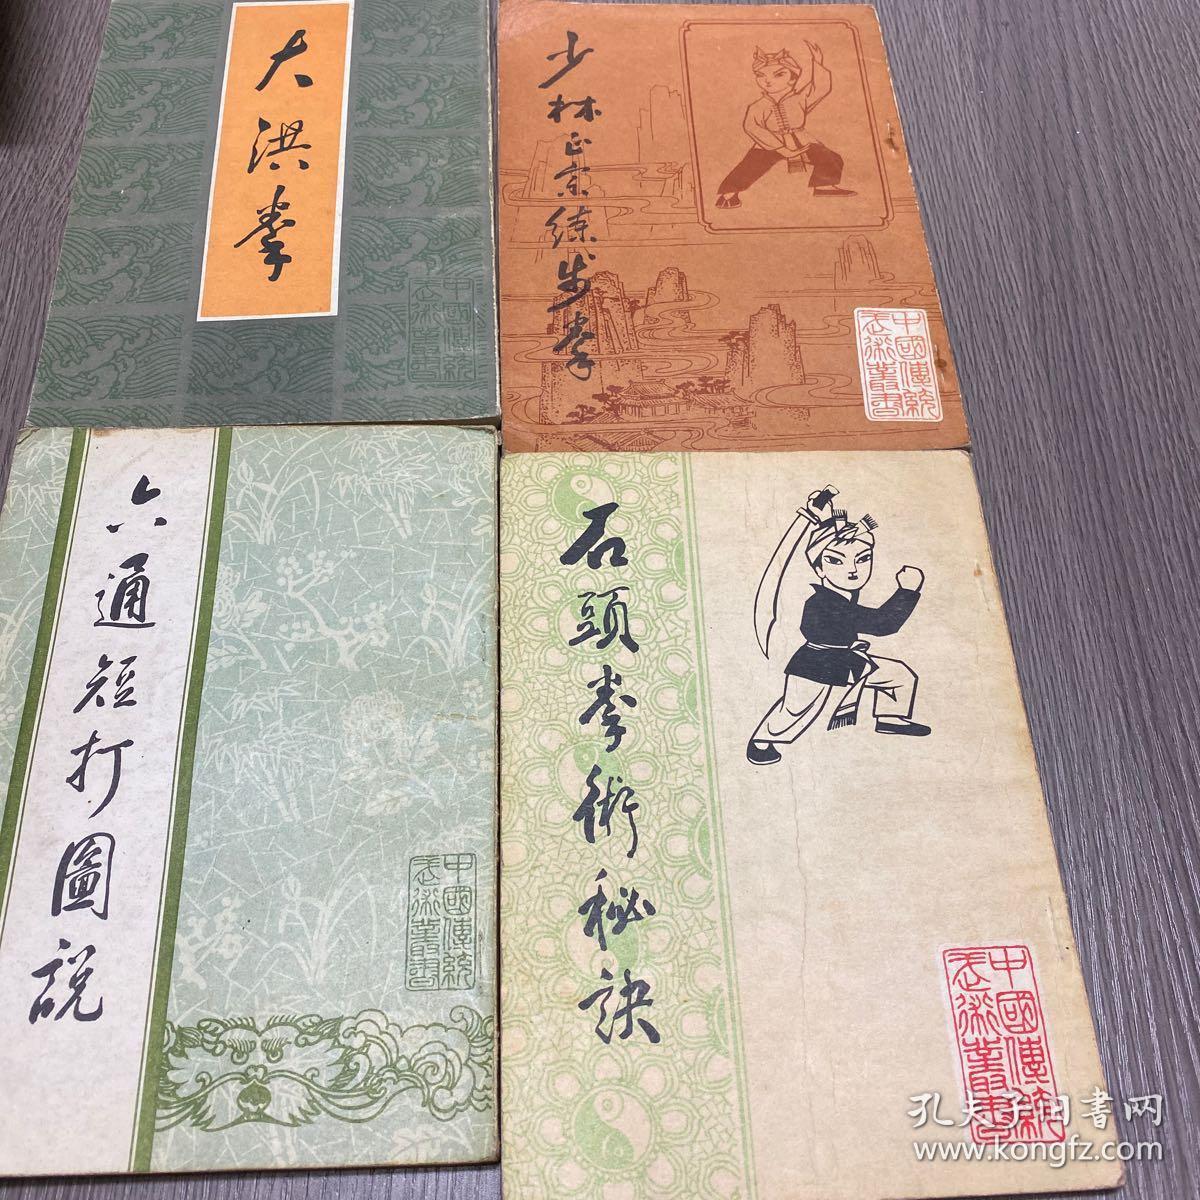 大洪拳
中國傳統
武術叢書
少林正宗练步拳
中國傳統
武術叢書
六通短打圖説
中國傳統
武術叢書
石頭拳術秘訣
中國傳統
武術叢書
孔夫子旧書网
www.kongfz.com